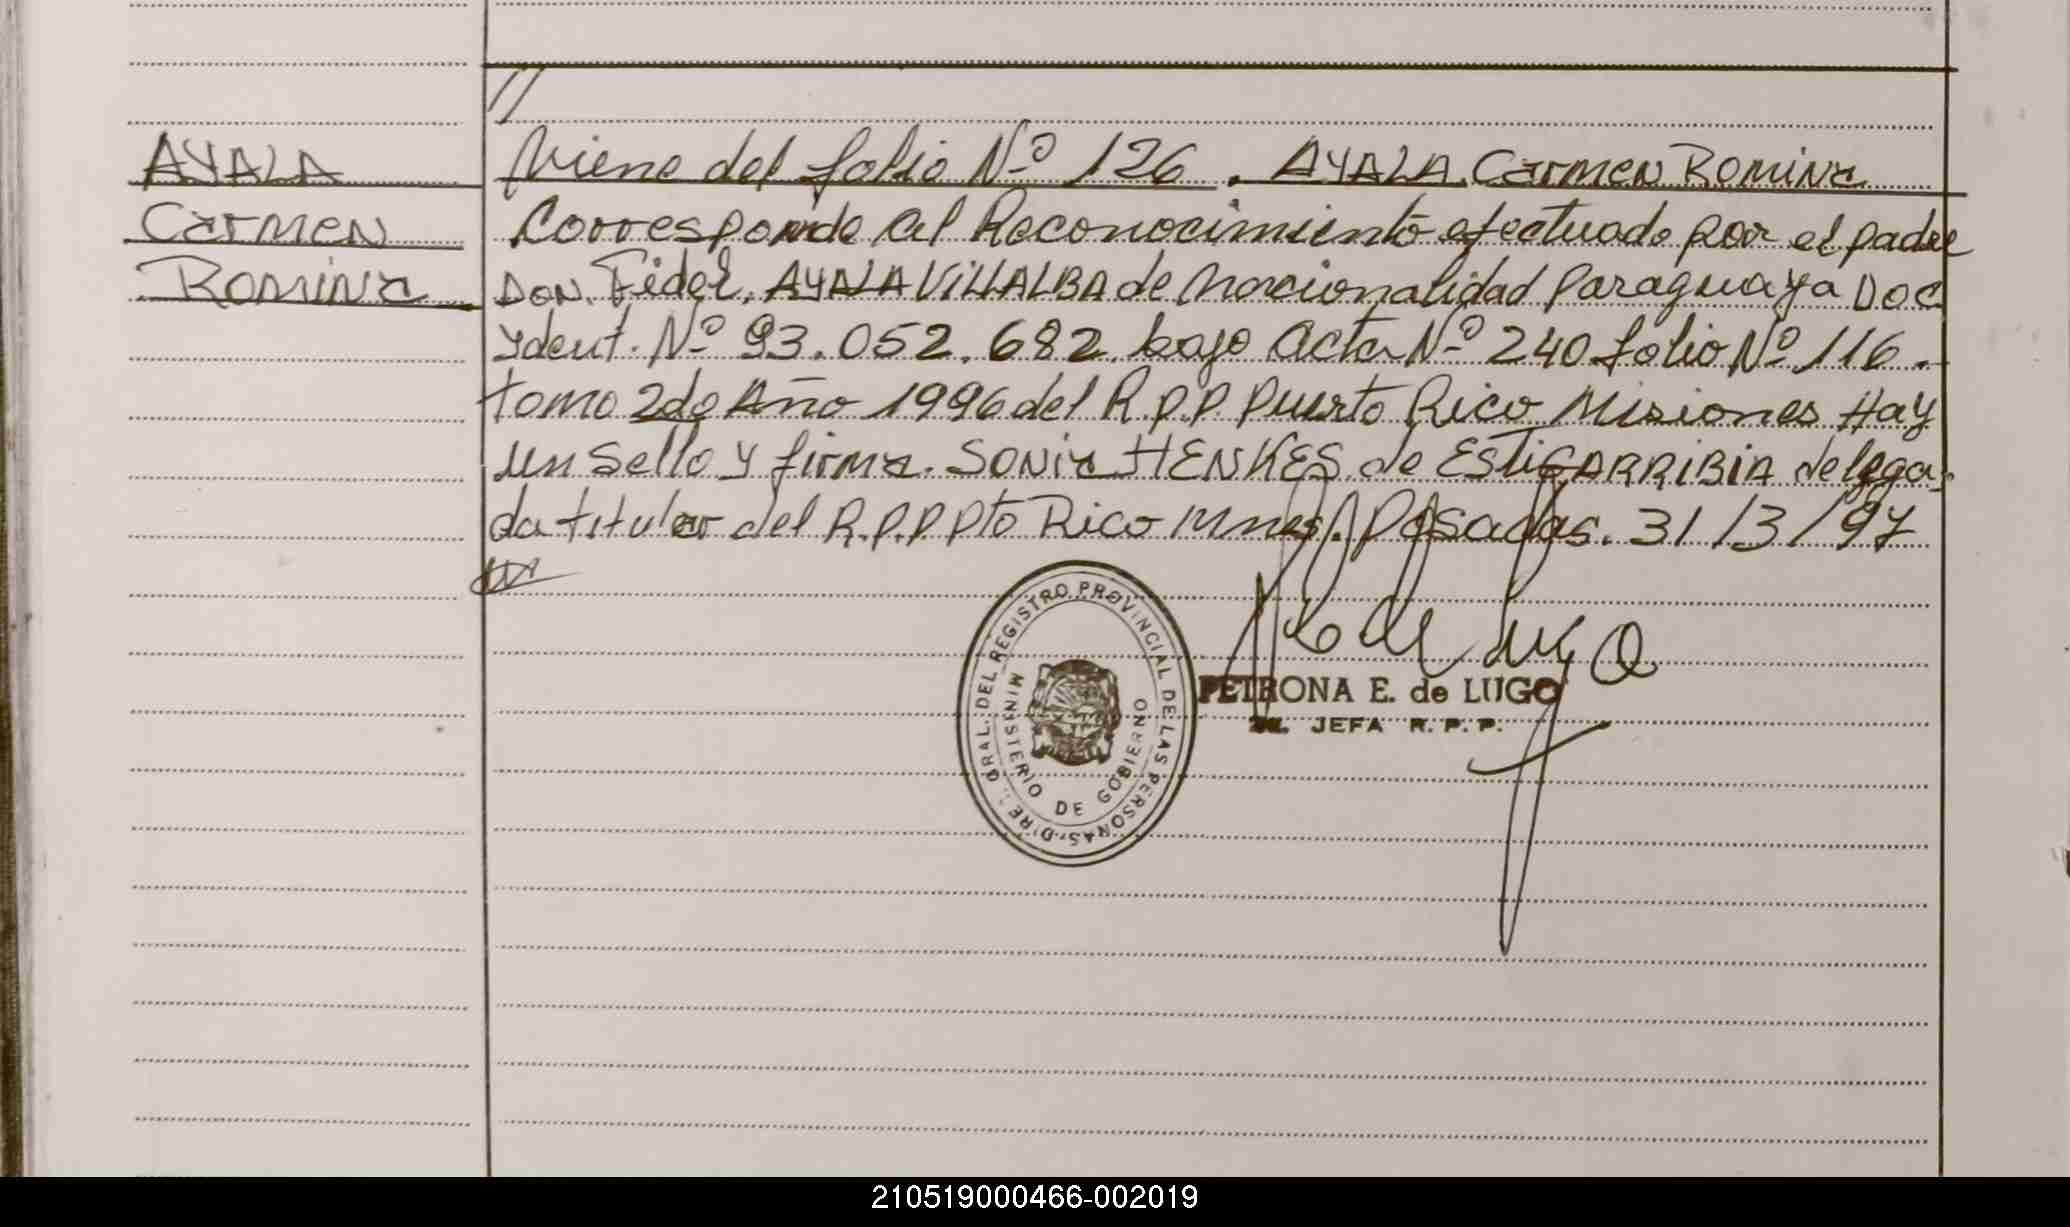 //
AYALA
Carmen
Romina
Viene del folio Nº 126. AYALA Carmen Romina
Corresponde al Reconocimiento efectuado por el padre
DON Fidel AYALA VILLALBA de Nacionalidad Paraguaya Doc
Ydent. Nº 93.052.682 bajo Acta Nº 240 folio Nº 116.
tomo 2do Año 1996 del R.P.P Puerto Rico Misiones Hay
un Sello y firma. SONIA HENKES de ESTIGARRIBIA delega-
da titular del R.P.P Pto Rico Mnes. Posadas. 31/3/97
DIRE. GRAL. DEL REGISTRO PROVINCIAL DE LAS PERSONAS.
MINISTERIO DE GOBIERNO
PETRONA E. de LUGO
JEFA R. P. P.
210519000466-002019